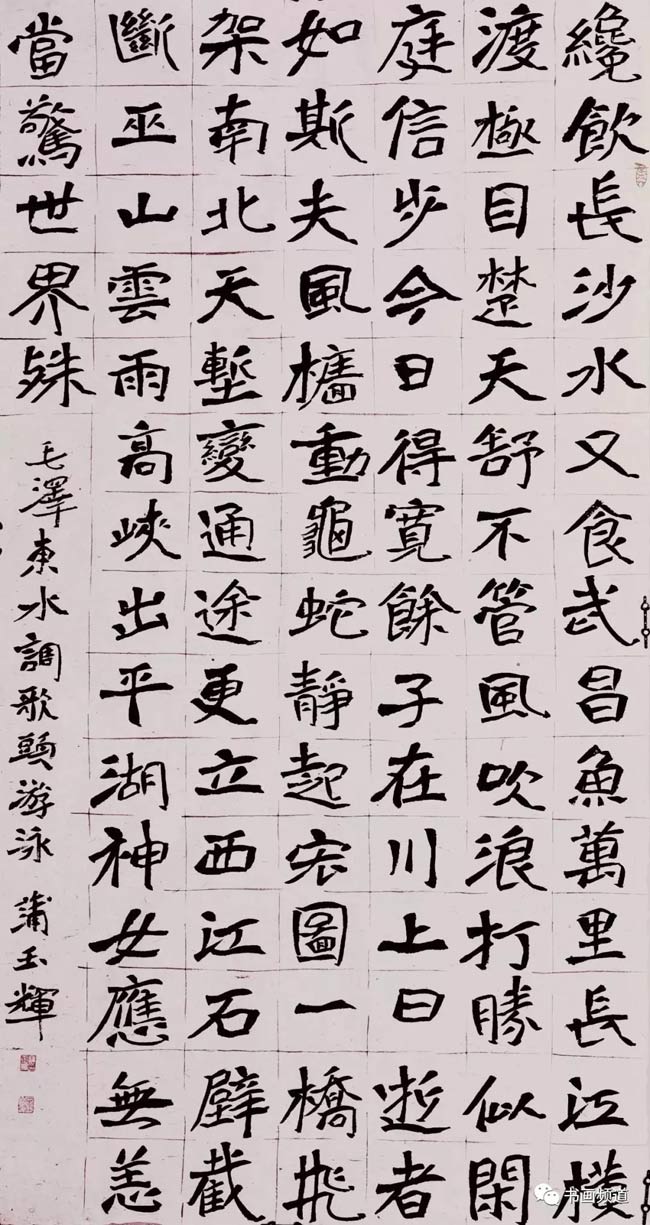 纔飲長沙水又食武昌魚萬里長江橫
渡極目楚天舒不管風吹浪打勝似閑
庭信步今日得寬餘子在川上曰逝者
如斯夫風檣動龜蛇靜起宏圖一橋飛
架南北天塹變通途更立西江石壁截
斷巫山雲雨高峽出平湖神女應無恙
當驚世界殊
毛澤東水調歌頭游泳 蒲玉輝
书画频道